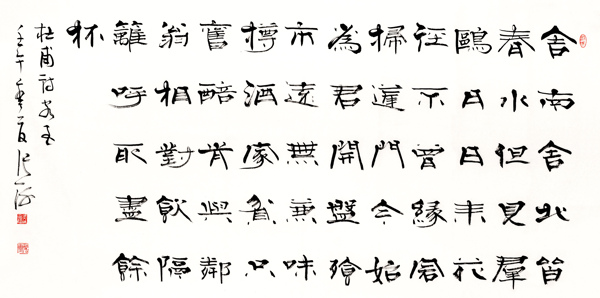 舍南舍北皆
春水但見羣
鷗日日来花
徑不曾緣客
掃蓬門今始
為君開盤飧
市遠無兼味
樽酒家貧只
舊醅肯與鄰
翁相對飲隔
籬呼取盡餘
杯
杜甫詩客至
壬午夏